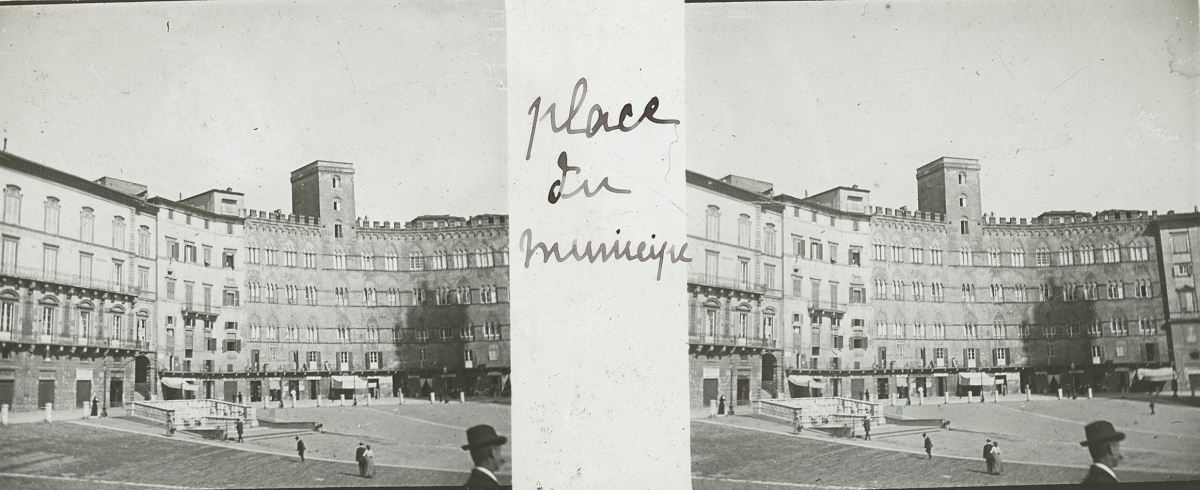 place
du
municipe